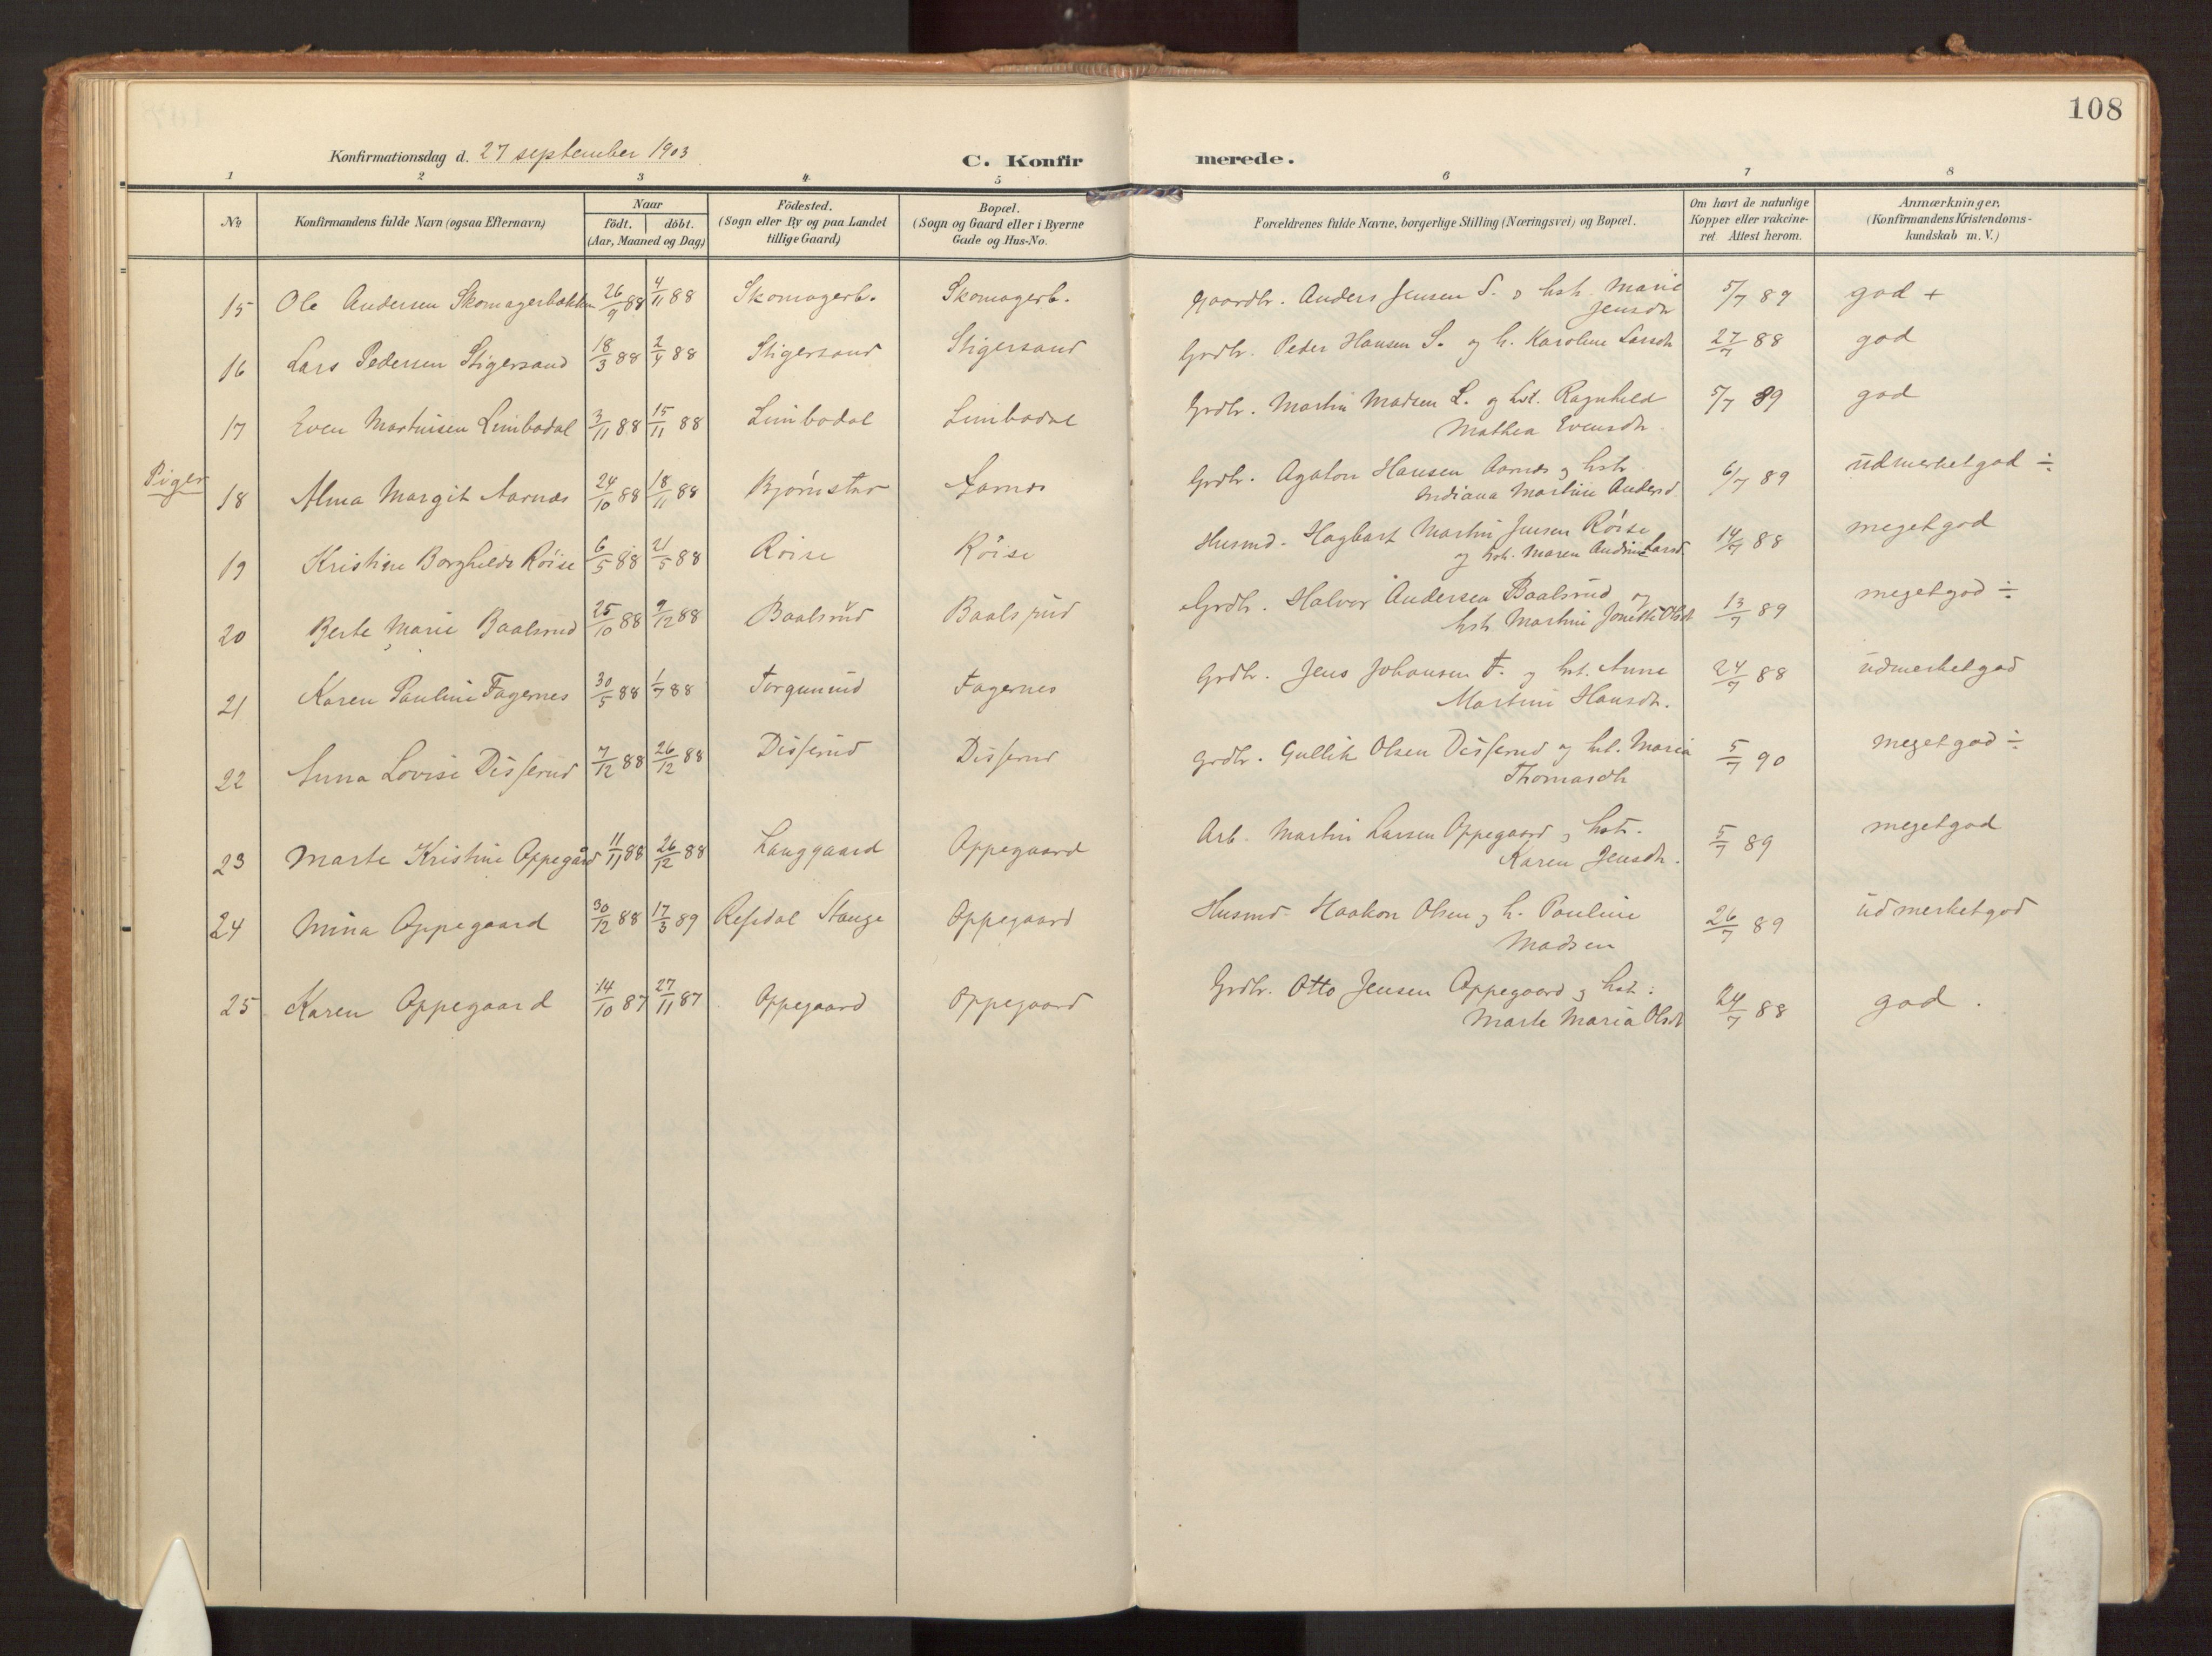 108
Konfirmationsdag d. 27 september 1903
C. Konfirmerede.
1 2 3 4 5 6 7 8
No
Konfirmandens fulde Navn (ogsaa Efternavn)
Naar
födt. döbt.
(Aar, Maaned og Dag)
Födested.
(Sogn eller By og paa Landet
tillige Gaard)
Bopæl.
(Sogn og Gaard eller i Byerne
Gade og Hus-No.
Forældrenes fulde Navne, borgerlige Stilling (Næringsvei) og Bopæl.
Om havt de naturlige
Kopper eller vakcine-
ret Attest herom.
Anmærkninger,
(Konfirmandens Kristendoms-
kundskab m. V.)
15 Ole Andersen Skomagerbakken 26/9 88 4/11 88 Skomagerb. Skomagerb. Gaardbr. Anders Jensen S. o hstr. Marie
Jensdtr 5/7 89 god +
16 Lars Pedersen Stigersand 18/3 88 2/4 88 Stigersand Stigersand Grdbr. Peder Hansen S. og h. Karoline Larsdtr 27/7 88 god
17 Even Martinisen Limbodal 3/11 88 15/11 88 Limbodal Limbodal Grdbr. Martin Madsen L. og hst. Ragnhild
Mathea Evensdtr 5/7 89 god
Piger
18 Alma Margit Aarnæs 24/10 88 18/11 88 Bjørnstad Aarnæs Grdbr. Agaton Hansen Aarnæs og hstr
Indiana Martine Andersd. 6/7 89 udmerket god ÷
19 Kristine Borghilde Röise 6/5 88 21/5 88 Röise Röise Husmd. Hagbart Martin Jensen Röise
og hst. Maren Andrine Larsd. 14/7 88 meget god
20 Berte Marie Baalsrud 25/10 88 9/12 88 Baalsrud Baalsrud Grdbr. Halvor Andersen Baalsrud og
hst. Martine Jonette Olsdt 13/7 89 meget god ÷
21 Karen Pauline Fagernes 30/5 88 1/7 88 Torgunrud Fagernes Grdbr. Jens Johansen F. og hst. Anne
Martine Hansdtr. 24/7 88 udmerket god
22 Anna Lovise Disserud 7/12 88 26/12 88 Disserud Disserud Grdbr. Gullik Olsen Disserud og hst. Maria
Thomasdtr 5/7 90 meget god ÷
23 Marte Kristine Oppegård 11/11 88 26/12 88 Langgaard Oppegaard Arb. Martin Larsen Oppegaard og hstr.
Karen Jensdtr. 5/7 89 meget god
24 Mina Oppegaard 30/12 88 17/3 89 Refsdal Stange Oppegaard Husmd. Haakon Olsen og h. Pauline
Madsen 26/7 89 udmerket god
25 Karen Oppegaard 14/10 87 27/11 87 Oppegaard Oppegaard Grdbr. Otto Jensen Oppegaard og hst.
Marte Maria Olsdt 24/7 88 god.